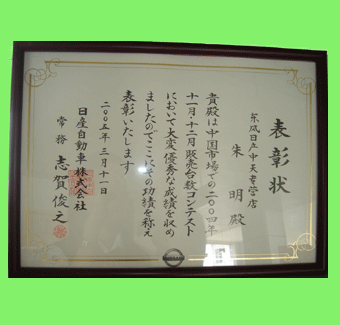 表彰状
东风日产中天专営店
朱 明 殿
貴殿は中国市場での二〇〇四年
十一月・十二月販売台数コンテスト
において大変優秀な成績を収め
ましたのでここにその功績を称え
表彰いたします
二〇〇五年 三月十一日
日産自動車株式会社
常務 志賀俊之
NISSAN